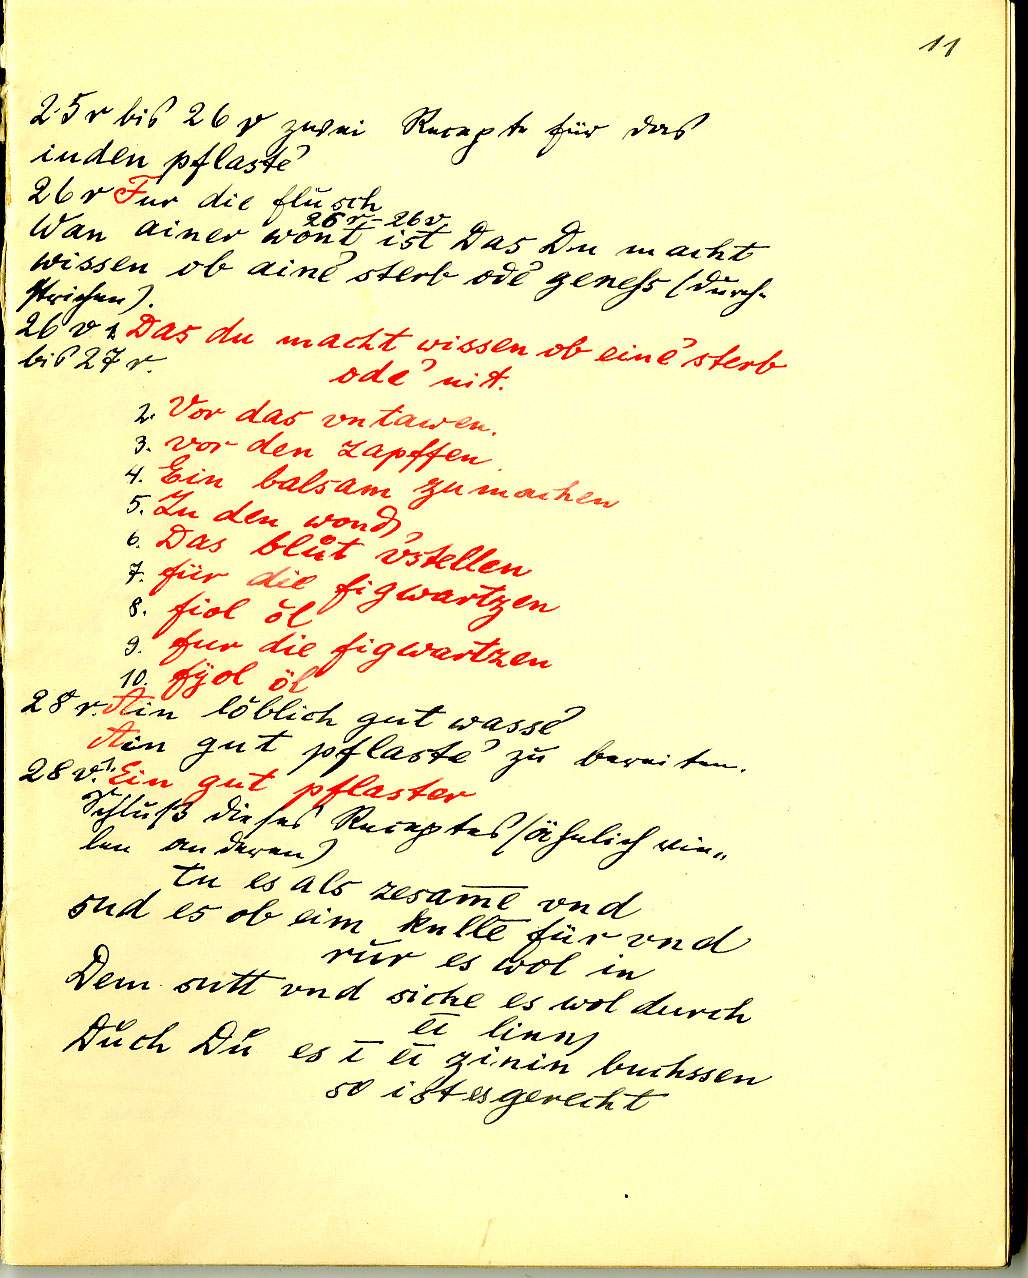 11
25 r bis 26 v zwei Recepte für das
inden pflaste᾽
26 r Fur die flüsch
26 r - 26 v
Wan ainer wont ist Das Du macht
wissen ob aine᾽ sterb ode᾽ geness (durch-
strichen).
26 v 1. Das du macht wissen ob eine᾽ sterb
bis 27 r. ode᾽ nit.
2. Vor das vntawen.
3. vor den zapffen.
4. Ein balsam zu machen
5. Zu den wond
6. Das blůt v᾽stellen
7. für die figwartzen
8. fiol öl
9. fur die figwartzen
10. fÿol öl
28 r. Ain löblich gut wasse᾽
Ain gut pflaste᾽ zů bereiten.
28 v. 1. Ein gut pflaster
Schluß dieses Receptes (ähnlich vie-
len anderen)
tu es als zesam̅e vnd
sud es ob eim kulle̅ für vnd
rur es wol in
Dem sutt vnd siche es wol durch
ei̅ linn
Důch Dů es i̅ ei̅ zinin buchssen
so ist es gerecht